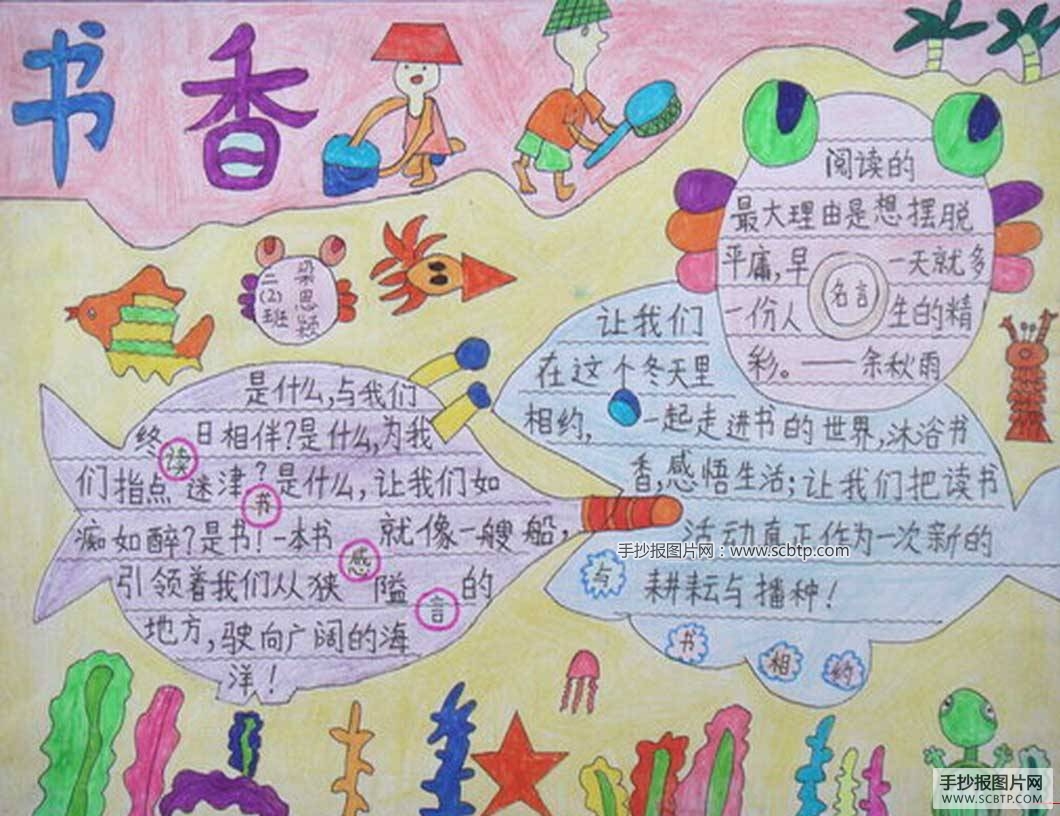 书香
二(2)班
梁思颖
阅读的
最大理由是想摆脱
平庸,早一天就多
一份人生的精
彩。——余秋雨
名言
是什么,与我们
终日相伴?是什么,为我
们指点迷津?是什么,让我们如
痴如醉?是书!一本书就像一艘船,
引领着我们从狭隘的
地方,驶向广阔的海
洋!
读书感言
让我们
在这个冬天里
相约,一起走进书的世界,沐浴书
香,感悟生活;让我们把读书
活动真正作为一次新的
耕耘与播种!
与书相约
手抄报图片网:www.scbtp.com
手抄报图片网
WWW.SCBTP.COM